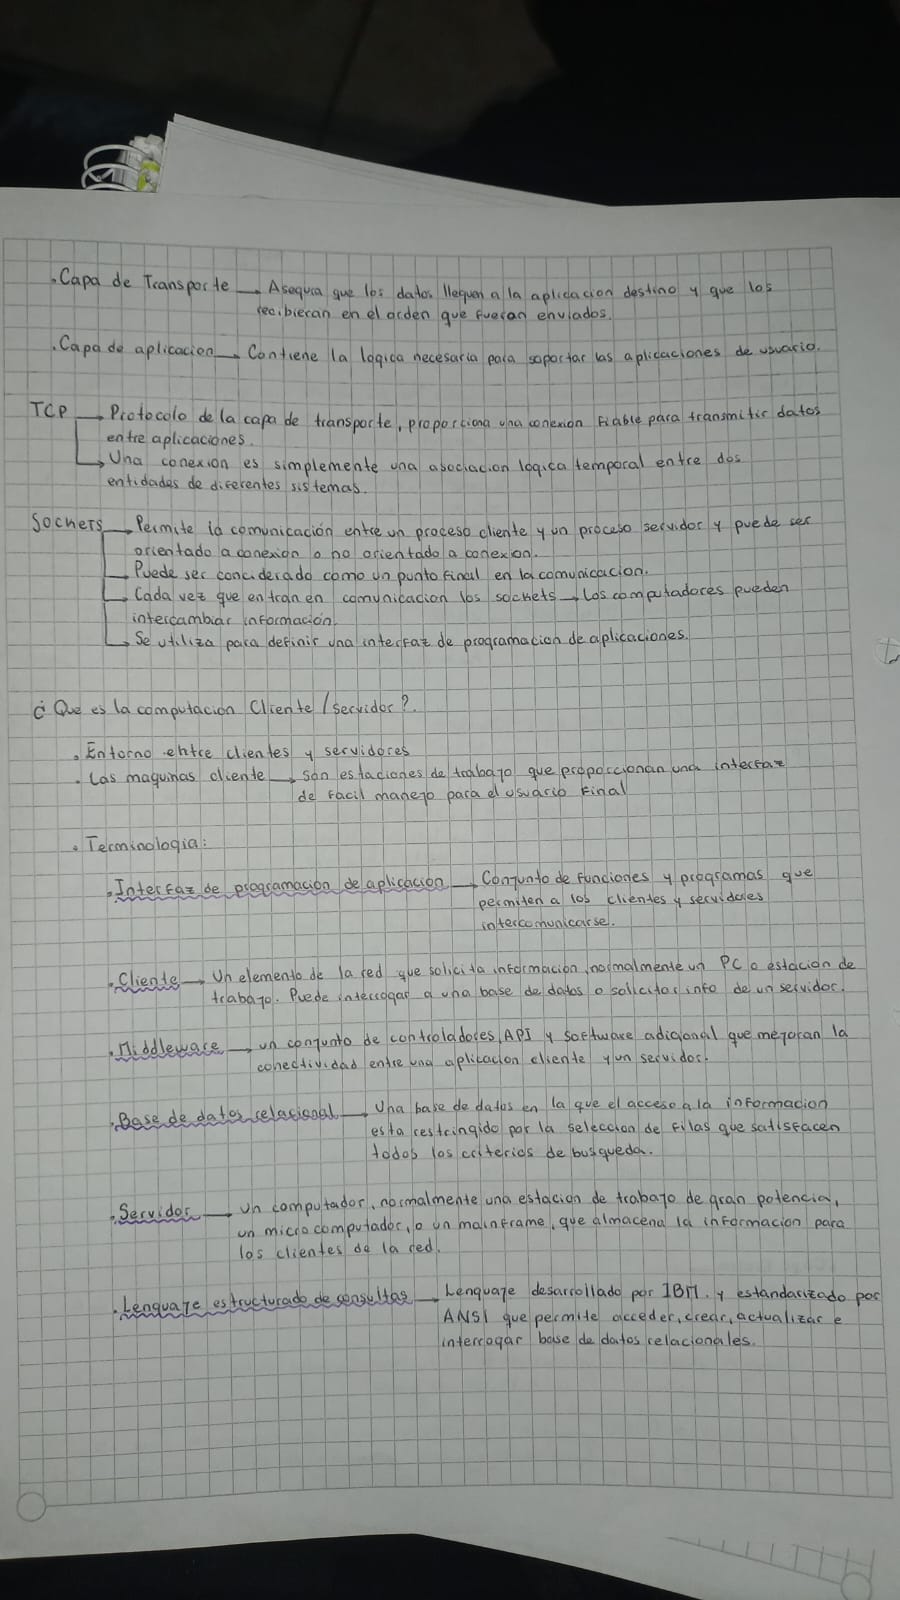 . Capa de Transporte → Asegura que los datos lleguen a la aplicacion destino y que los
recibieran en el orden que fueran enviados.
. Capa de aplicacion → Contiene la logica necesaria para soportar las aplicaciones de usuario.
TCP → Protocolo de la capa de transporte, proporciona una conexion fiable para transmitir datos
entre aplicaciones.
→ Una conexion es simplemente una asociacion logica temporal entre dos
entidades de diferentes sistemas.
Sockets → Permite la comunicación entre un proceso cliente y un proceso servidor y puede ser
orientado a conexion o no orientado a conexion.
→ Puede ser conciderado como un punto final en la comunicacion.
→ Cada vez que entran en comunicacion los sockets → Los computadores pueden
intercambiar informacion.
→ Se utiliza para definir una interfaz de programacion de aplicaciones.
¿Que es la computacion Cliente/servidor?
. Entorno entre clientes y servidores
. Las maquinas cliente → son estaciones de trabajo que proporcionan una interfaz
de facil manejo para el usuario final
. Terminologia:
. Interfaz de programacion de aplicacion → Conjunto de funciones y programas que
permiten a los clientes y servidores
intercomunicarse.
. Cliente → Un elemento de la red que solicita informacion, normalmente un PC o estacion de
trabajo. Puede interrogar a una base de datos o solicitar info de un servidor.
. Middleware → un conjunto de controladores, API y software adicional que mejoran la
conectividad entre una aplicacion cliente y un servidor.
. Base de datos relacional → Una base de datos en la que el acceso a la informacion
esta restringido por la seleccion de filas que satisfacen
todos los criterios de busqueda.
. Servidor → Un computador, normalmente una estacion de trabajo de gran potencia,
un microcomputador, o un mainframe, que almacena la informacion para
los clientes de la red.
. Lenguaje estructurado de consultas → Lenguaje desarrollado por IBM. y estandarizado por
ANSI que permite acceder, crear, actualizar e
interrogar base de datos relacionales.